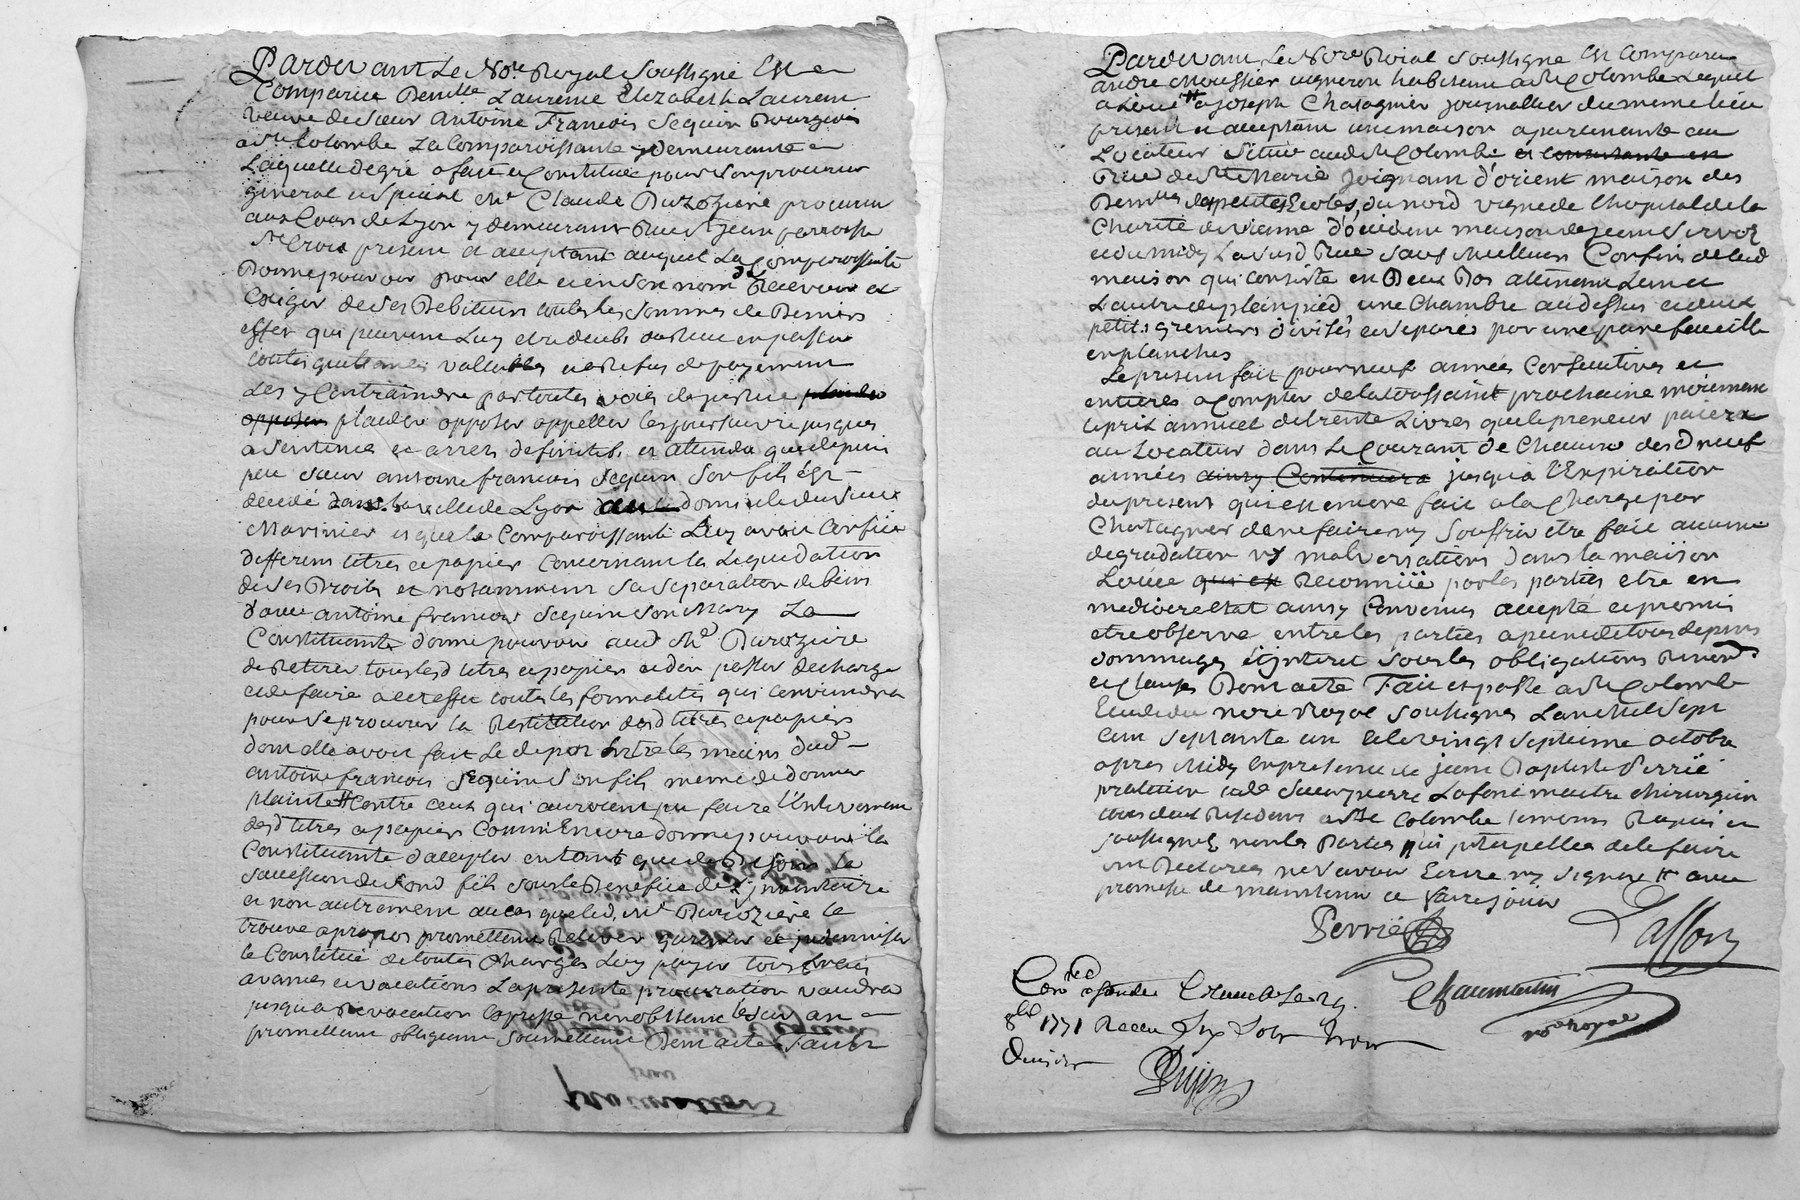 Pardevant Le No.re Royal Soussigné Est
Comparüe Dem.lle Laurence Elizabeth Laurent
veuve de Sieur Antoine François Seguin Bourgeois
a Ste Colombe La Comparoissante y demeurante
Laquelle de gré a fait et Constitué pour Son procureur
general et special Me Claude Duroziere procureur
aux Cours de Lyon y demeurant Rue St jean parroisse
Ste Croix present et acceptant auquel La Comparoissante
Donne pouvoir pour elle et en Son nom de Recevoir et
Exiger de Ses Debiteurs toutes les Sommes de Deniers
effet qui peuvent Luy etre deubs en passer
toutes quittances vallables et a Refus de payement
Les y Contraindre par toutes voies de justice plaider
opposer plaider opposer appeller les poursuivre jusques
a Sentence et arrets definitifs et attendu que depuis
peu Sieur antoine francois Seguin Son fils est
decedé dans la ville de Lyon au domicile du Sieur
Marinier et que la Comparoissante Luy avoit Confié
differens titres et papier Concernant la Liquidation
de Ses Droits et notamment Sa Separation de biens
d'avec antoine francois Seguin Son Mary La
Constituante donne pouvoir aud Me Duroziere
de Retirer tous lesd titres et papiers et d'en passer decharge
et de faire a cet effet toutes les formalités qui Conviendra
pour Se procurer la Restitution desd titres et papiers
dont elle avoit fait Le depot Entre les mains dud
antoine francois Seguin Son fils meme de donner
plainte Contre Ceux qui auroient pu faire l'Enlevement
desd titres et papiers Comm'Encore donne pouvoir la
Constituante d'accepter en tant que de besoin la
Succession dud Sond fils Sous le Benefice de L'jnventaire
et non autrement au cas que led. Me Duroziere le
trouve apropos promettant Relever garentir et jndemniser
le Constitué de toutes Charges Luy payer tous frais
avances et vacations La presente procuration vaudra
jusqua Revocation Expresse nonobstant le Sur an
promettant obligeant Soumettant Dont acte Fait et
procuration
Pardevant Le No.re Roial Soussigné Est Comparu
andre Moussier vigneron habitant a Ste Colombe Lequel
a Loué a joseph Chatagnier journallier du meme lieu
present et acceptant une maison apartenante au
Locateur Située aud Ste Colombe et Consistante en
Rue de Ste Marie joignant d'orient maison des
Dem.lles des petites Ecoles, du nord vigne de l'hopital de la
Charité de vienne d'occident maison de jean Servoz
et du midy Lasusd Rue Sauf Meilleurs Confins de lad
maison qui Consiste en Deux Bas attenant Lun et
Lautre de plein pied une Chambre au dessus et deux
petits greniers divisés et Separés par une parefeuille
en planches
Le present fait pour neuf années Consecutives et
entieres a Compter de la toussaint prochaine moienant
le prix annuel de trente Livres que le preneur paiera
au Locateur dans Le Courant de Chacune desd neuf
années ainsy Continuera jusqu'a l'Expiration
du present qui est encore fait a la Charge par
Chatagner de ne faire ny Souffrir etre fait aucune
degradation ny malversations dans la maison
Louée qui est Reconnüe par les parties etre en
mediocre etat ainsy Convenu accepté et promis
etre observé entre les parties a peine de tous depens
dommages et jnteret Sous les obligations Renon.
et Clauses Dont acte Fait et passé a Ste Colombe
Etude du nore Royal Soussigné Lan Mil Sept
Cent Septante un et le vingt Septieme octobre
apres Midy En presence de jean Baptiste Perrié
praticien et de Sieur pierre Lafont maitre chirurgien
tous deux Residents a Ste Colombe temoins Requis et
Soussignés non les Parties qui jnterpellés de le faire
ont Declarés ne Scavoir Ecrire ny Signer avec
promesse de maintenir et faire jouir
Perrié
Laffon
Chaumartin
nore royal
8bre 1771 Receu Six Sols